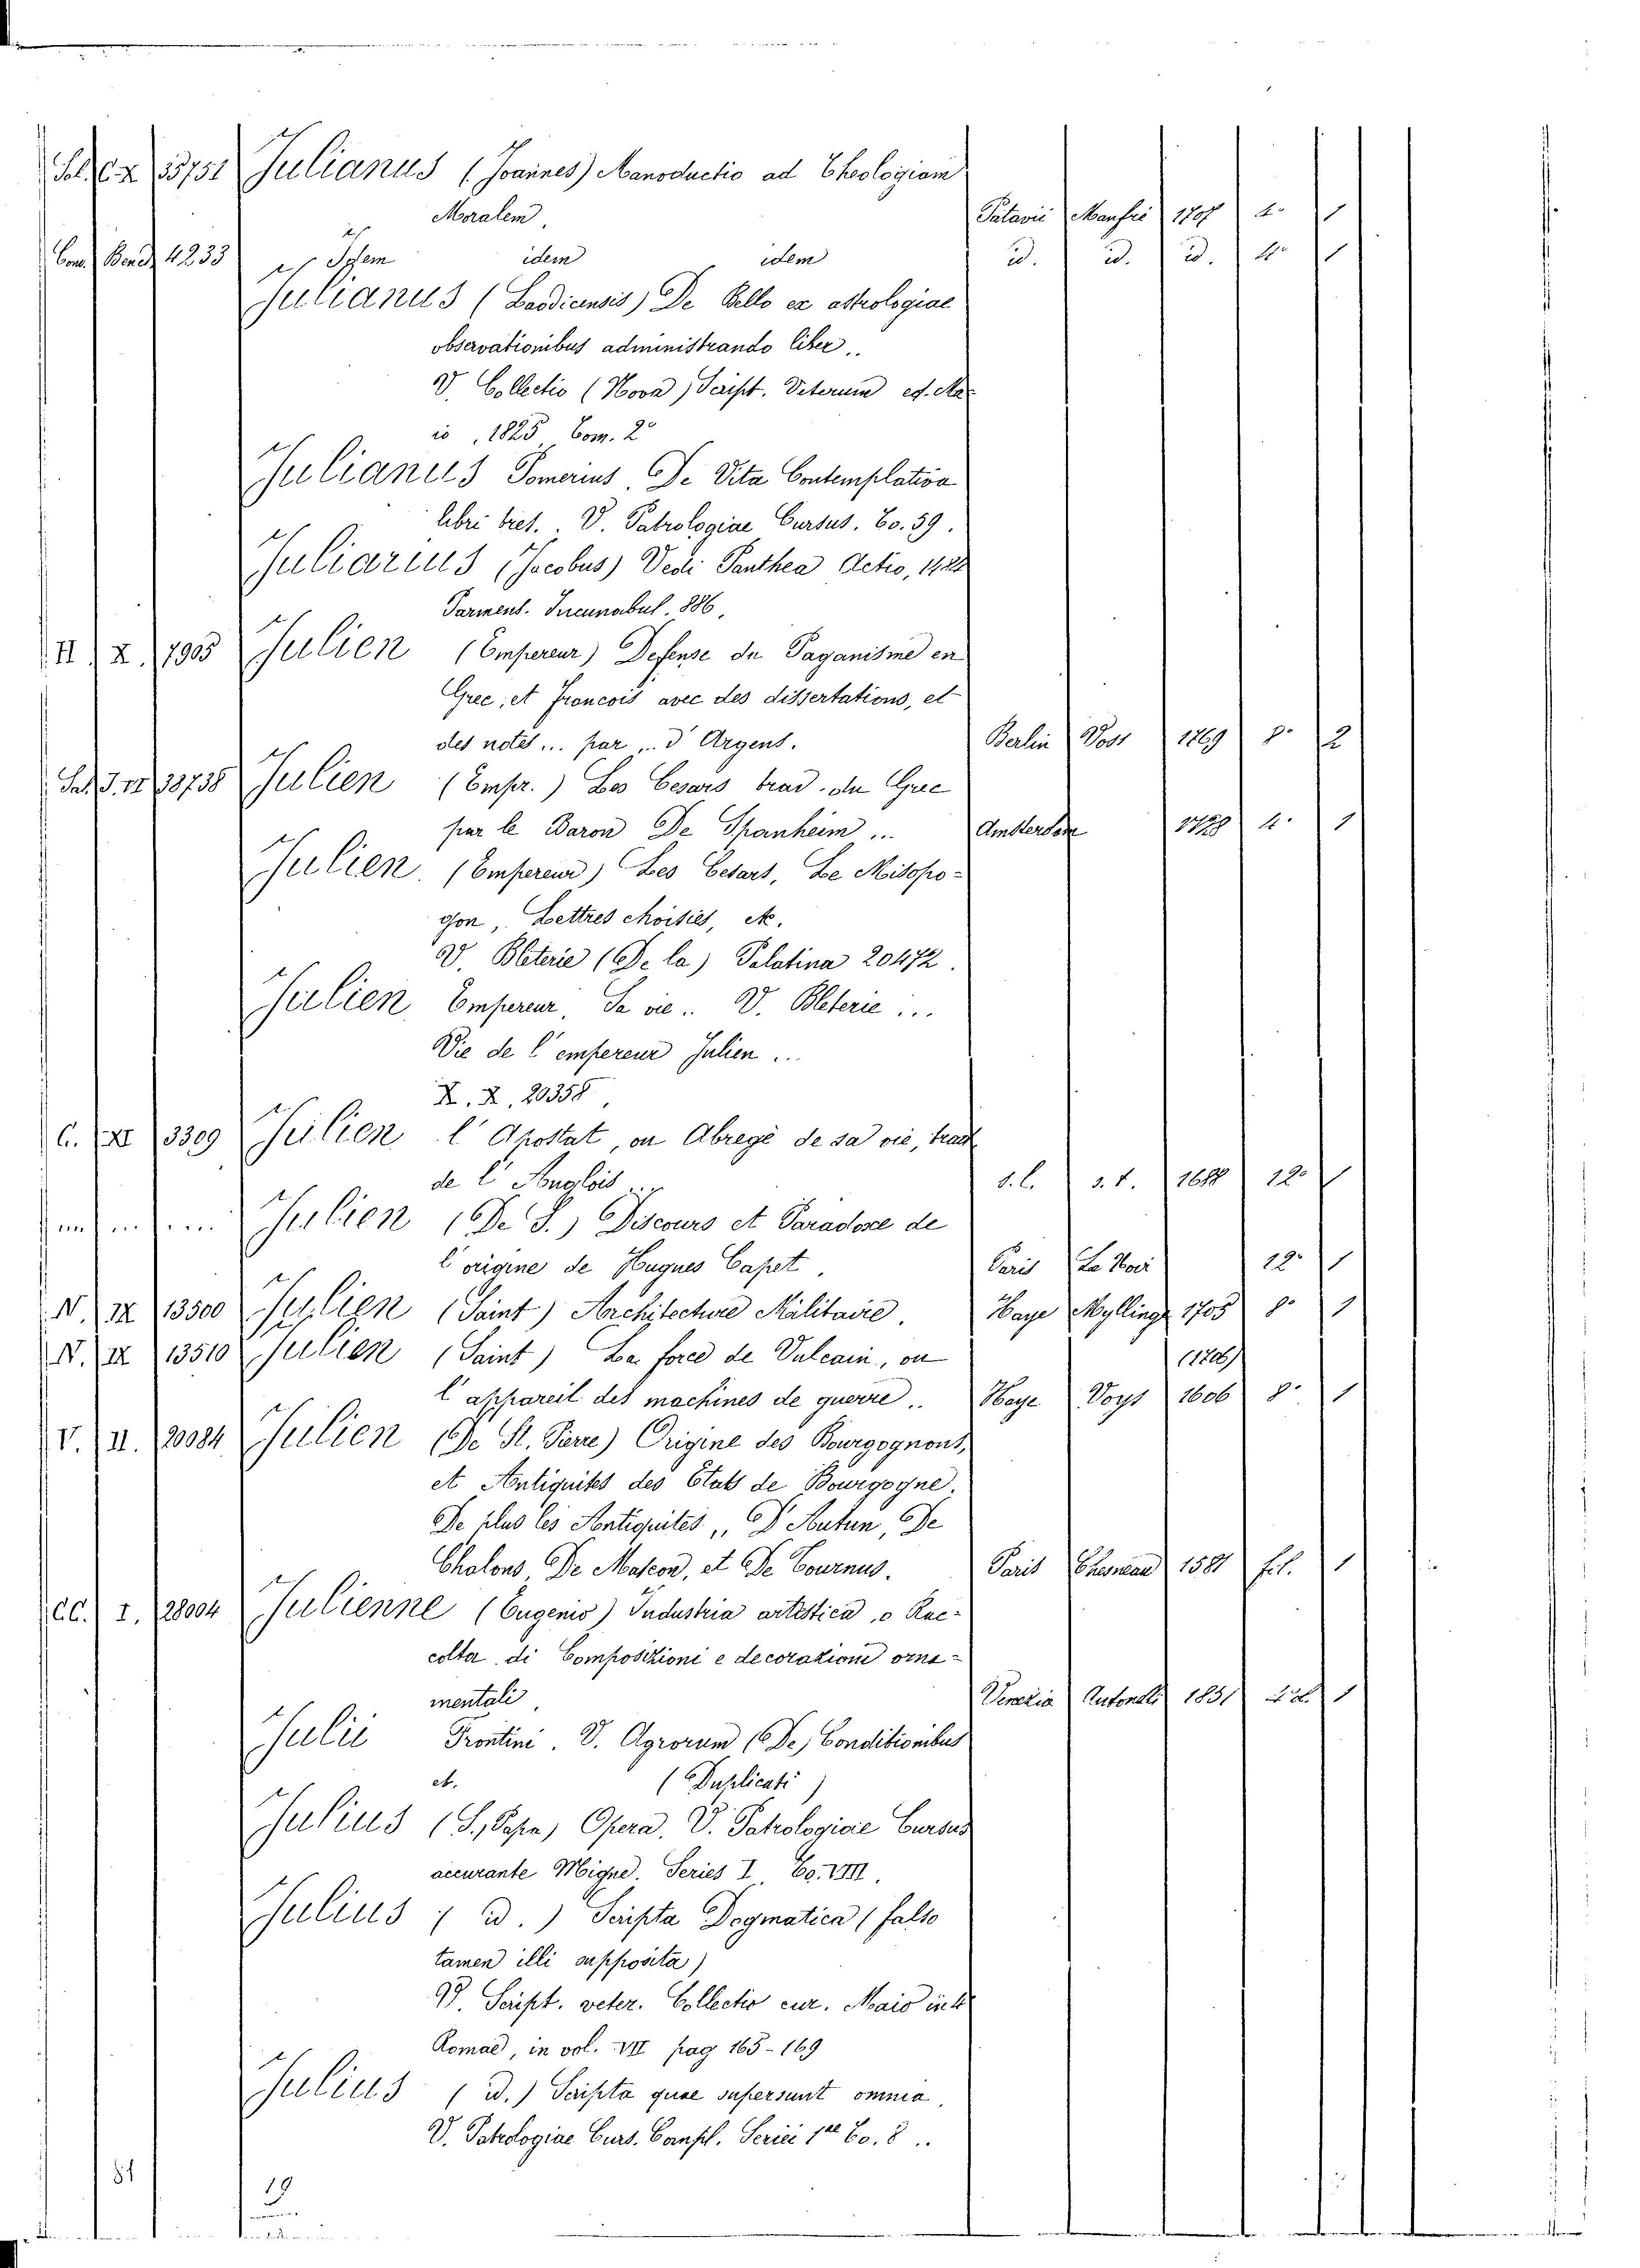 Sal. C. X 33751 Julianus (Joannes) Manoductio ad Theologiam
Moralem, Patavii Manfrè 1707 4° 1
Com. Bened. 4233 Item idem idem id. id. id. 4° 1
Julianus (Laodicensis) De Bello ex astrologiae
observationibus administrando liber..
V. Collectio (Nova) Script. Veterum ed. Ma
io, 1825, Tom. 2°
Julianus Pomerius. De Vita Contemplativa
libri tres. V. Patrologiae Cursus. To. 59.
Juliarius (Jacobus) Vedi Panthea Actio, 1484
Parmens. Incunabul. 886.
II X. 7905 Julien (Empereur) Defense du Paganisme en
Grec, et Francois avec des dissertations, et
des notes... par ... d'Argens. Berlin Voss 1769 8° 2
Sal. J. II 33738 Julien (Empr.) Les Cesars trad. du Grec
par le Baron De Spanheim... Amsterdam 1728 4° 1
Julien. (Empereur) Les Cesars, Le Misopo-
gon, Lettres choisies, etc.
V. Bleterie (De la) Palatina 20472.
Julien Empereur, Sa vie.. V. Bleterie...
Vie de l'empereur Julien...
X. X. 20358.
C. XI 3309 Julien l'Apostat, ou Abregé de sa vie, trad
de l'Anglois... s.l. s.t. 1688 12° 1
Julien (De S.) Discours et Paradoxe de
l'origine de Hugues Capet. Paris La Noi 12° 1
N. IX 13500 Julien (Saint) Architecture Militaire. Haye Mylling 1705 8° 1
N. IX 13510 Julien (Saint) La force de Vulcain, ou (1706)
l'appareil des machines de guerre.. Haye Voys 1606 8° 1
V. II. 20084 Julien (De St. Pierre) Origine des Bourgognons,
et Antiquités des Etats de Bourgogne.
De plus les Antiquités,, D'Autun, De
Chalons, De Mascon, et De Tournus. Paris Chesneau 1581 fol. 1
CC. I. 28004 Julienne (Eugenio) Industria artistica, o Rac-
colta di Composizioni e decorazioni orna-
mentali, Venezia Antonelli 1851 fol. 1
Julii Frontini. V. Agrorum (De) Conditionibus
et. (Duplicati)
Julius (S., Papa) Opera. V. Patrologiae Cursus
accurante Migne. Series I. To. VIII.
Julius (id.) Scripta Dogmatica (falso
tamen illi supposita)
V. Script. veter. Collectio cur. Maio in 4
Romae, in vol. VII pag 165-169
Julius (id.) Scripta quae supersunt omnia.
V. Patrologiae Curs. Compl. Serici 1ae To. 8..
81 19